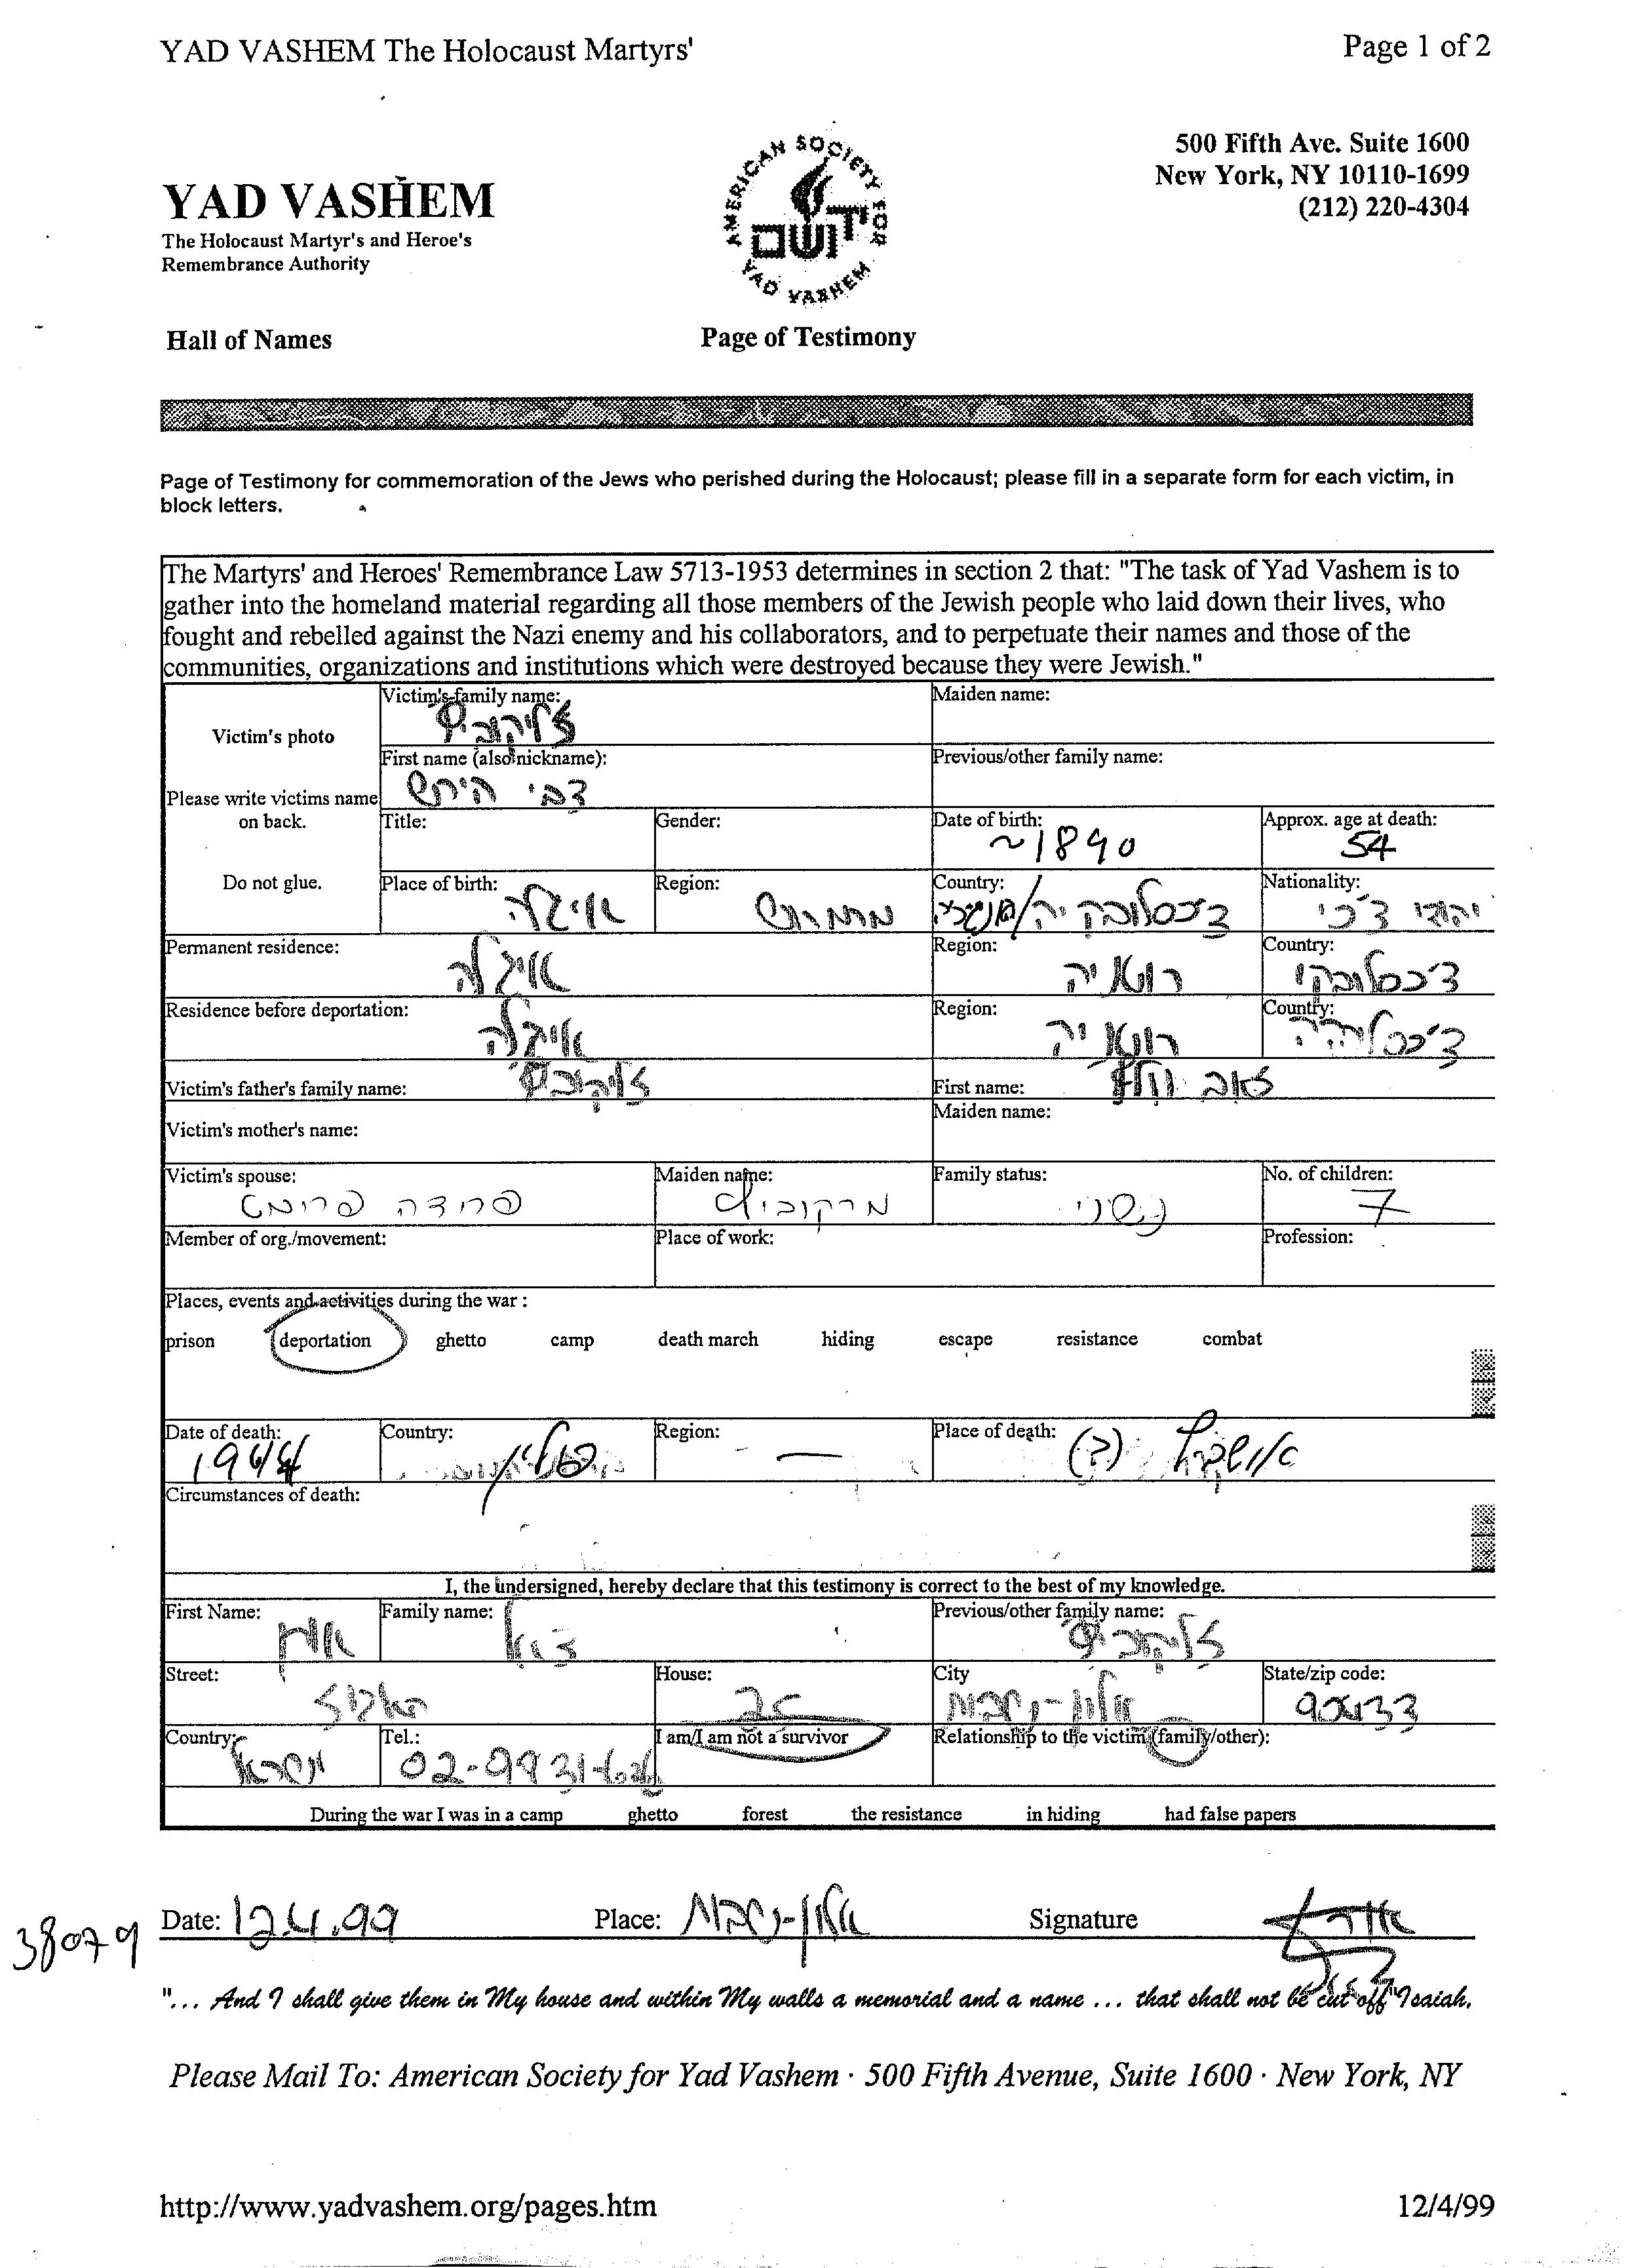 YAD VASHEM The Holocaust Martyrs' Page 1 of 2
500 Fifth Ave. Suite 1600
New York, NY 10110-1699
(212) 220-4304
YAD VASHEM
The Holocaust Martyr's and Heroe's
Remembrance Authority
AMERICAN SOCIETY FOR
יד ושם
YAD VASHEM
Hall of Names Page of Testimony
Page of Testimony for commemoration of the Jews who perished during the Holocaust; please fill in a separate form for each victim, in
block letters.
The Martyrs' and Heroes' Remembrance Law 5713-1953 determines in section 2 that: "The task of Yad Vashem is to
gather into the homeland material regarding all those members of the Jewish people who laid down their lives, who
fought and rebelled against the Nazi enemy and his collaborators, and to perpetuate their names and those of the
communities, organizations and institutions which were destroyed because they were Jewish."
Victim's photo
Please write victims name
on back.
Do not glue.
Victim's family name: Maiden name:
First name (also nickname): צבי הירש Previous/other family name:
Title: Gender: Date of birth: ~1890 Approx. age at death: 54
Place of birth: Region: Country: Nationality: יהודי צ'כי
Permanent residence: Region: Country:
Residence before deportation: Region: Country:
Victim's father's family name: First name: זאב
Victim's mother's name: Maiden name:
Victim's spouse: פרידה פרומט Maiden name: מרקוביץ Family status: נשוי No. of children: 7
Member of org./movement: Place of work: Profession:
Places, events and activities during the war :
prison deportation ghetto camp death march hiding escape resistance combat
Date of death: 1944 Country: Region: — Place of death: אושוויץ (?)
Circumstances of death:
I, the undersigned, hereby declare that this testimony is correct to the best of my knowledge.
First Name: Family name: Previous/other family name:
Street: House: City אלון-שבות State/zip code: 90433
Country: ישראל Tel.: I am/I am not a survivor Relationship to the victim (family/other):
During the war I was in a camp ghetto forest the resistance in hiding had false papers
38079
Date: 12.4.99 Place: אלון-שבות Signature
"... And I shall give them in My house and within My walls a memorial and a name ... that shall not be cut off" Isaiah.
Please Mail To: American Society for Yad Vashem · 500 Fifth Avenue, Suite 1600 · New York, NY
http://www.yadvashem.org/pages.htm 12/4/99